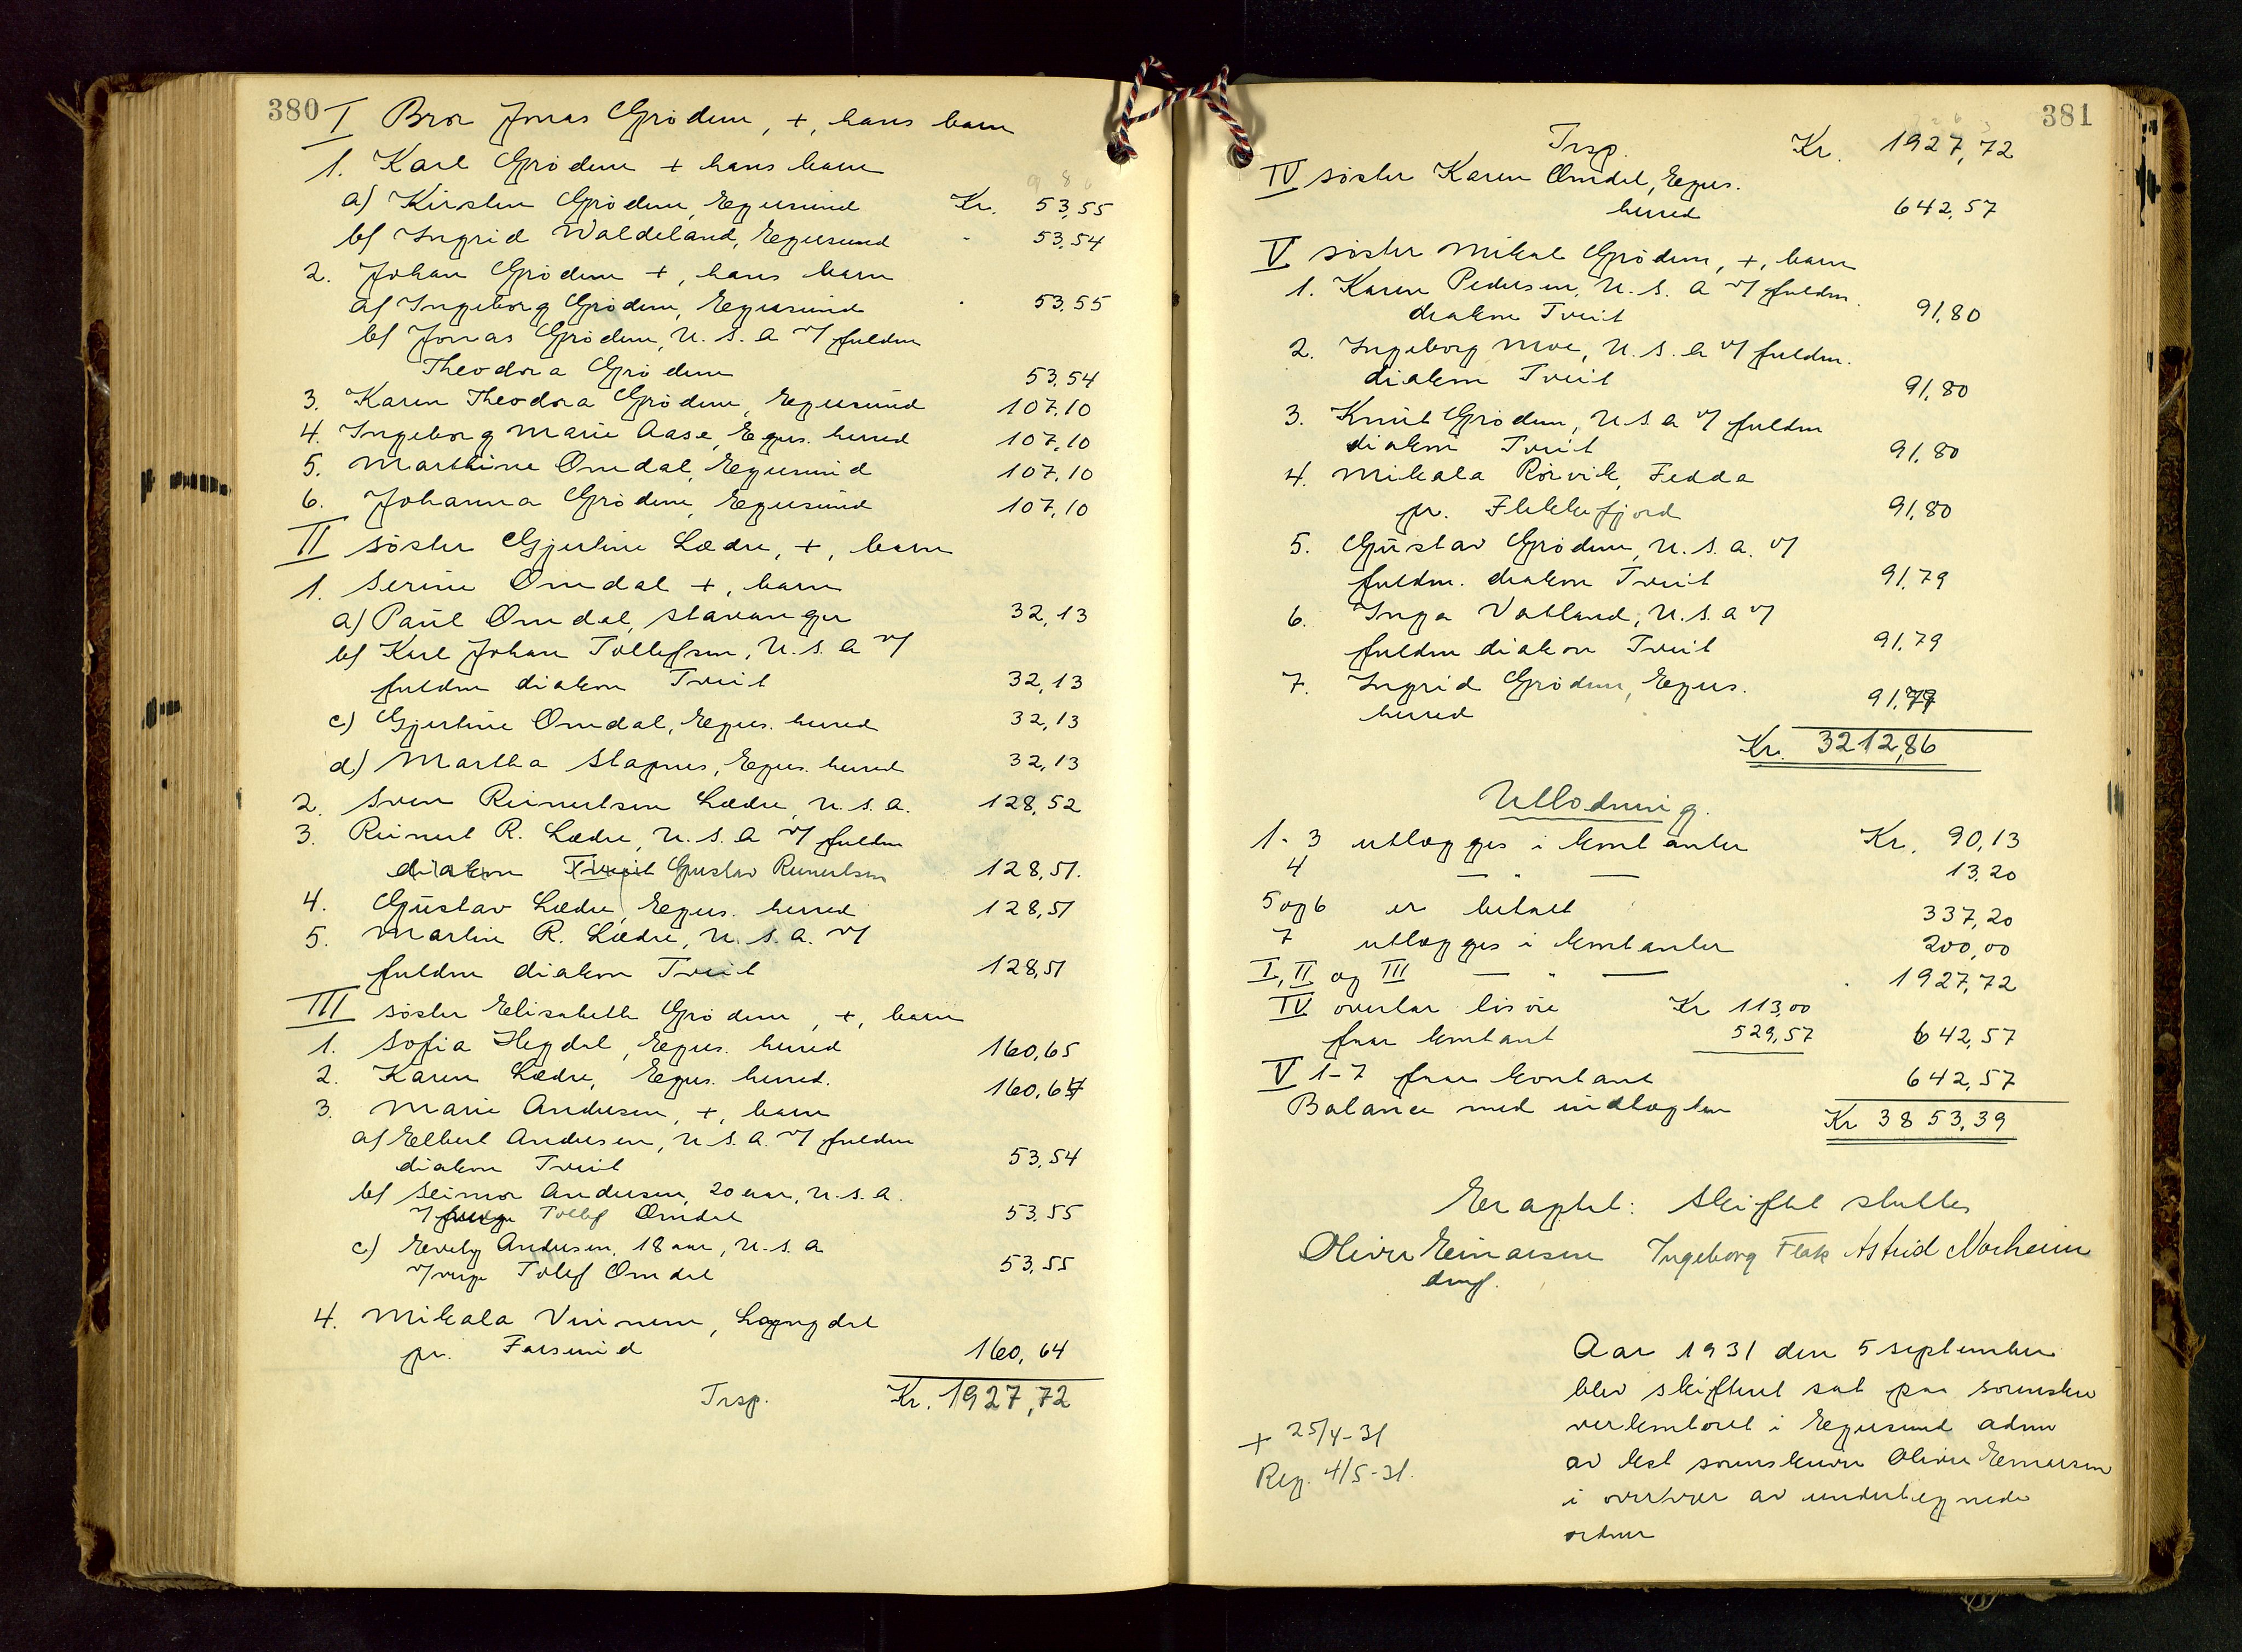 380
I Bror Jonas Grödem, +, hans barn
1. Karl Grödem + hans barn
a) Kirsten Grödem, Egersund Kr. 53,55
b/ Ingrid Waldeland, Egersund - 53,54
2. Johan Grödem +, hans barn
a/ Ingeborg Grödem, Egersund - 53,55
b/ Jonas Grödem, U.S.A v/ fuldm
Theodora Grödem 53,54
3. Karen Theodora Grödem, Egersund 107,10
4. Ingeborg Marie Aase, Egers. herred 107,10
5. Marthine Omdal, Egersund 107,10
6. Johanna Grödem, Egersund 107,10
II Söster Gjertine Lædre, +, barn
1. Serine Omdal +, barn
a) Paul Omdal, Stavanger 32,13
b/ Karl Johan Tollefsen, U.S.A v/
fuldm diakon Tveit 32,13
c) Gjertine Omdal, Egers. herred 32,13
d) Martha Stapnes, Egers. herred 32,13
2. Sven Reinertsen Lædre, U.S.A. 128,52
3. Reinert R. Lædre, U.S.A v/ fuldm
diakon Tveit Gustav Reinertsen 128,51.
4. Gustav Lædre, Egers. herred 128,51
5. Martin R. Lædre, U.S.A. v/
fuldm diakon Tveit 128,51
III Söster Elisabeth Grödem, +, barn
1. Sofia Hegdal, Egers. herred 160,65
2. Karen Lædre, Egers. herred. 160,64
3. Marie Andersen, +, barn
a/ Elbert Andersen, U.S.A. v/ fuldm
diakon Tveit 53,54
b/ Seimor Andersen, 20 aar, U.S.A.
v/ Tollef Omdal 53,55
c) Evely Andersen, 18 aar, U.S.A
v/verge Tollef Omdal 53,55
4. Mikala Vinnem, Lyngdal
pr. Farsund 160,64
Trsp. Kr. 1927,72
381
Trsp. Kr. 1927,72
IV Söster Karen Omdal, Egers.
herred 642,57
V Söster Mikal Grödem, +, barn
1. Karen Pedersen, U.S.A v/ fuldm.
diakon Tveit 91,80
2. Ingeborg Moe, U.S.A v/ fuldm.
diakon Tveit 91,80
3. Knut Grödem, U.S.A v/ fuldm
diakon Tveit 91,80
4. Mikala Rörvik, Fedda
pr. Flekkefjord 91,80
5. Gustav Grödem, U.S.A. v/
fuldm. diakon Tveit 91,79
6. Inga Vatland, U.S.A v/
fuldm diakon Tveit 91,79
7. Ingrid Grödem, Egers.
herred 91,79
Kr. 3212,86
Utlodning.
1-3 utlægges i kontanter Kr. 90,13
4 — " — 13,20
5 og 6 er betalt 337,20
7 utlægges i kontanter 200,00
I, II og III — " — 1927,72
IV overtar lösöre Kr 113,00
faar kontant 529,57 642,57
V 1-7 faar kontant 642,57
Balance med indtægten Kr 3853,39
Eragtet: Skiftet sluttes
Oliver Einarsen Ingeborg Flak Astrid Norheim
dmf.
Aar 1931 den 5 september
blev skifteret sat paa sorenskri
verkontoret i Egersund adm
av kst sorenskriver Oliver Einarsen
i overvær av undertegnede
vidner
+ 25/4-31
Reg. 4/5-31.